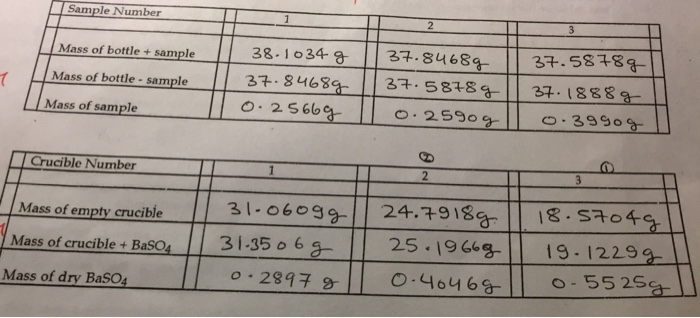 Sample Number 1 2 3
Mass of bottle + sample 38.1034 g 37.8468g 37.5878g
Mass of bottle - sample 37.8468g 37.5878g 37.1888g
Mass of sample 0.2566g 0.2590g 0.3990g
② ①
Crucible Number 1 2 3
Mass of empty crucible 31.0609g 24.7918g 18.5704g
Mass of crucible + BaSO4 31.3506g 25.1966g 19.1229g
Mass of dry BaSO4 0.2897g 0.4046g 0.5525g